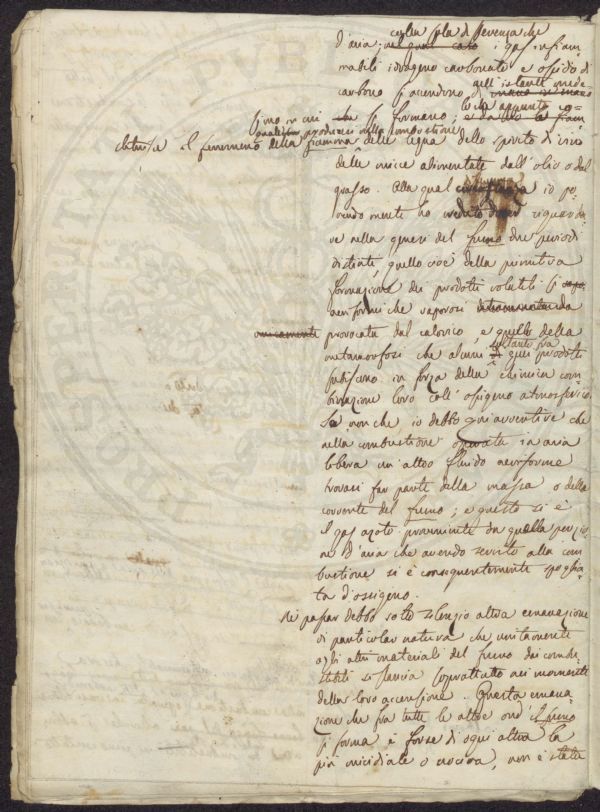 colla sola differenza che
d'aria; nel qual caso i gas infiam-
mabili idrogeno carbonato e ossido di
nell'istante mede-
carbonio s'accendono
simo in cui si formano; lo che appunto co-
qualora producesi nella combustione
stituisce il fenomeno della fiamma della legna dello spirito di vino
delle micce alimentate dall'olio o dal
grasso. Alla qual circostanza io po-
nendo mente ho creduto dover riguarda-
re nella genesi del fumo due periodi
distinti, quello cioè della primitiva
formazione dei prodotti volatili sì
aeriformi che vaporosi
unicamente provocata dal calorico, e quello della
soltanto fra
metamorfosi che alcuni di quei prodotti
subiscono in forza della chimica com-
binazione loro coll'ossigeno atmosferico.
Se non che io debbo qui avvertire che
nella combustione operata in aria
libera un altro fluido aeriforme
trovasi far parte della massa o della
corrente del fumo; e questo si è
il gas azoto proveniente da quella porzio-
ne d'aria che avendo servito alla com-
bustione si è conseguentemente spoglia-
ta d'ossigeno.
Nè passar debbo sotto silenzio altra emanazione
di particolar natura che unitamente
agli altri materiali del fumo dai combu-
stibili si slancia soprattutto nei momenti
della loro accensione. Questa emana-
zione che fra tutte le altre ond'il fumo
si forma è forse di ogni altra la
più micidiale o nociva, non è stata